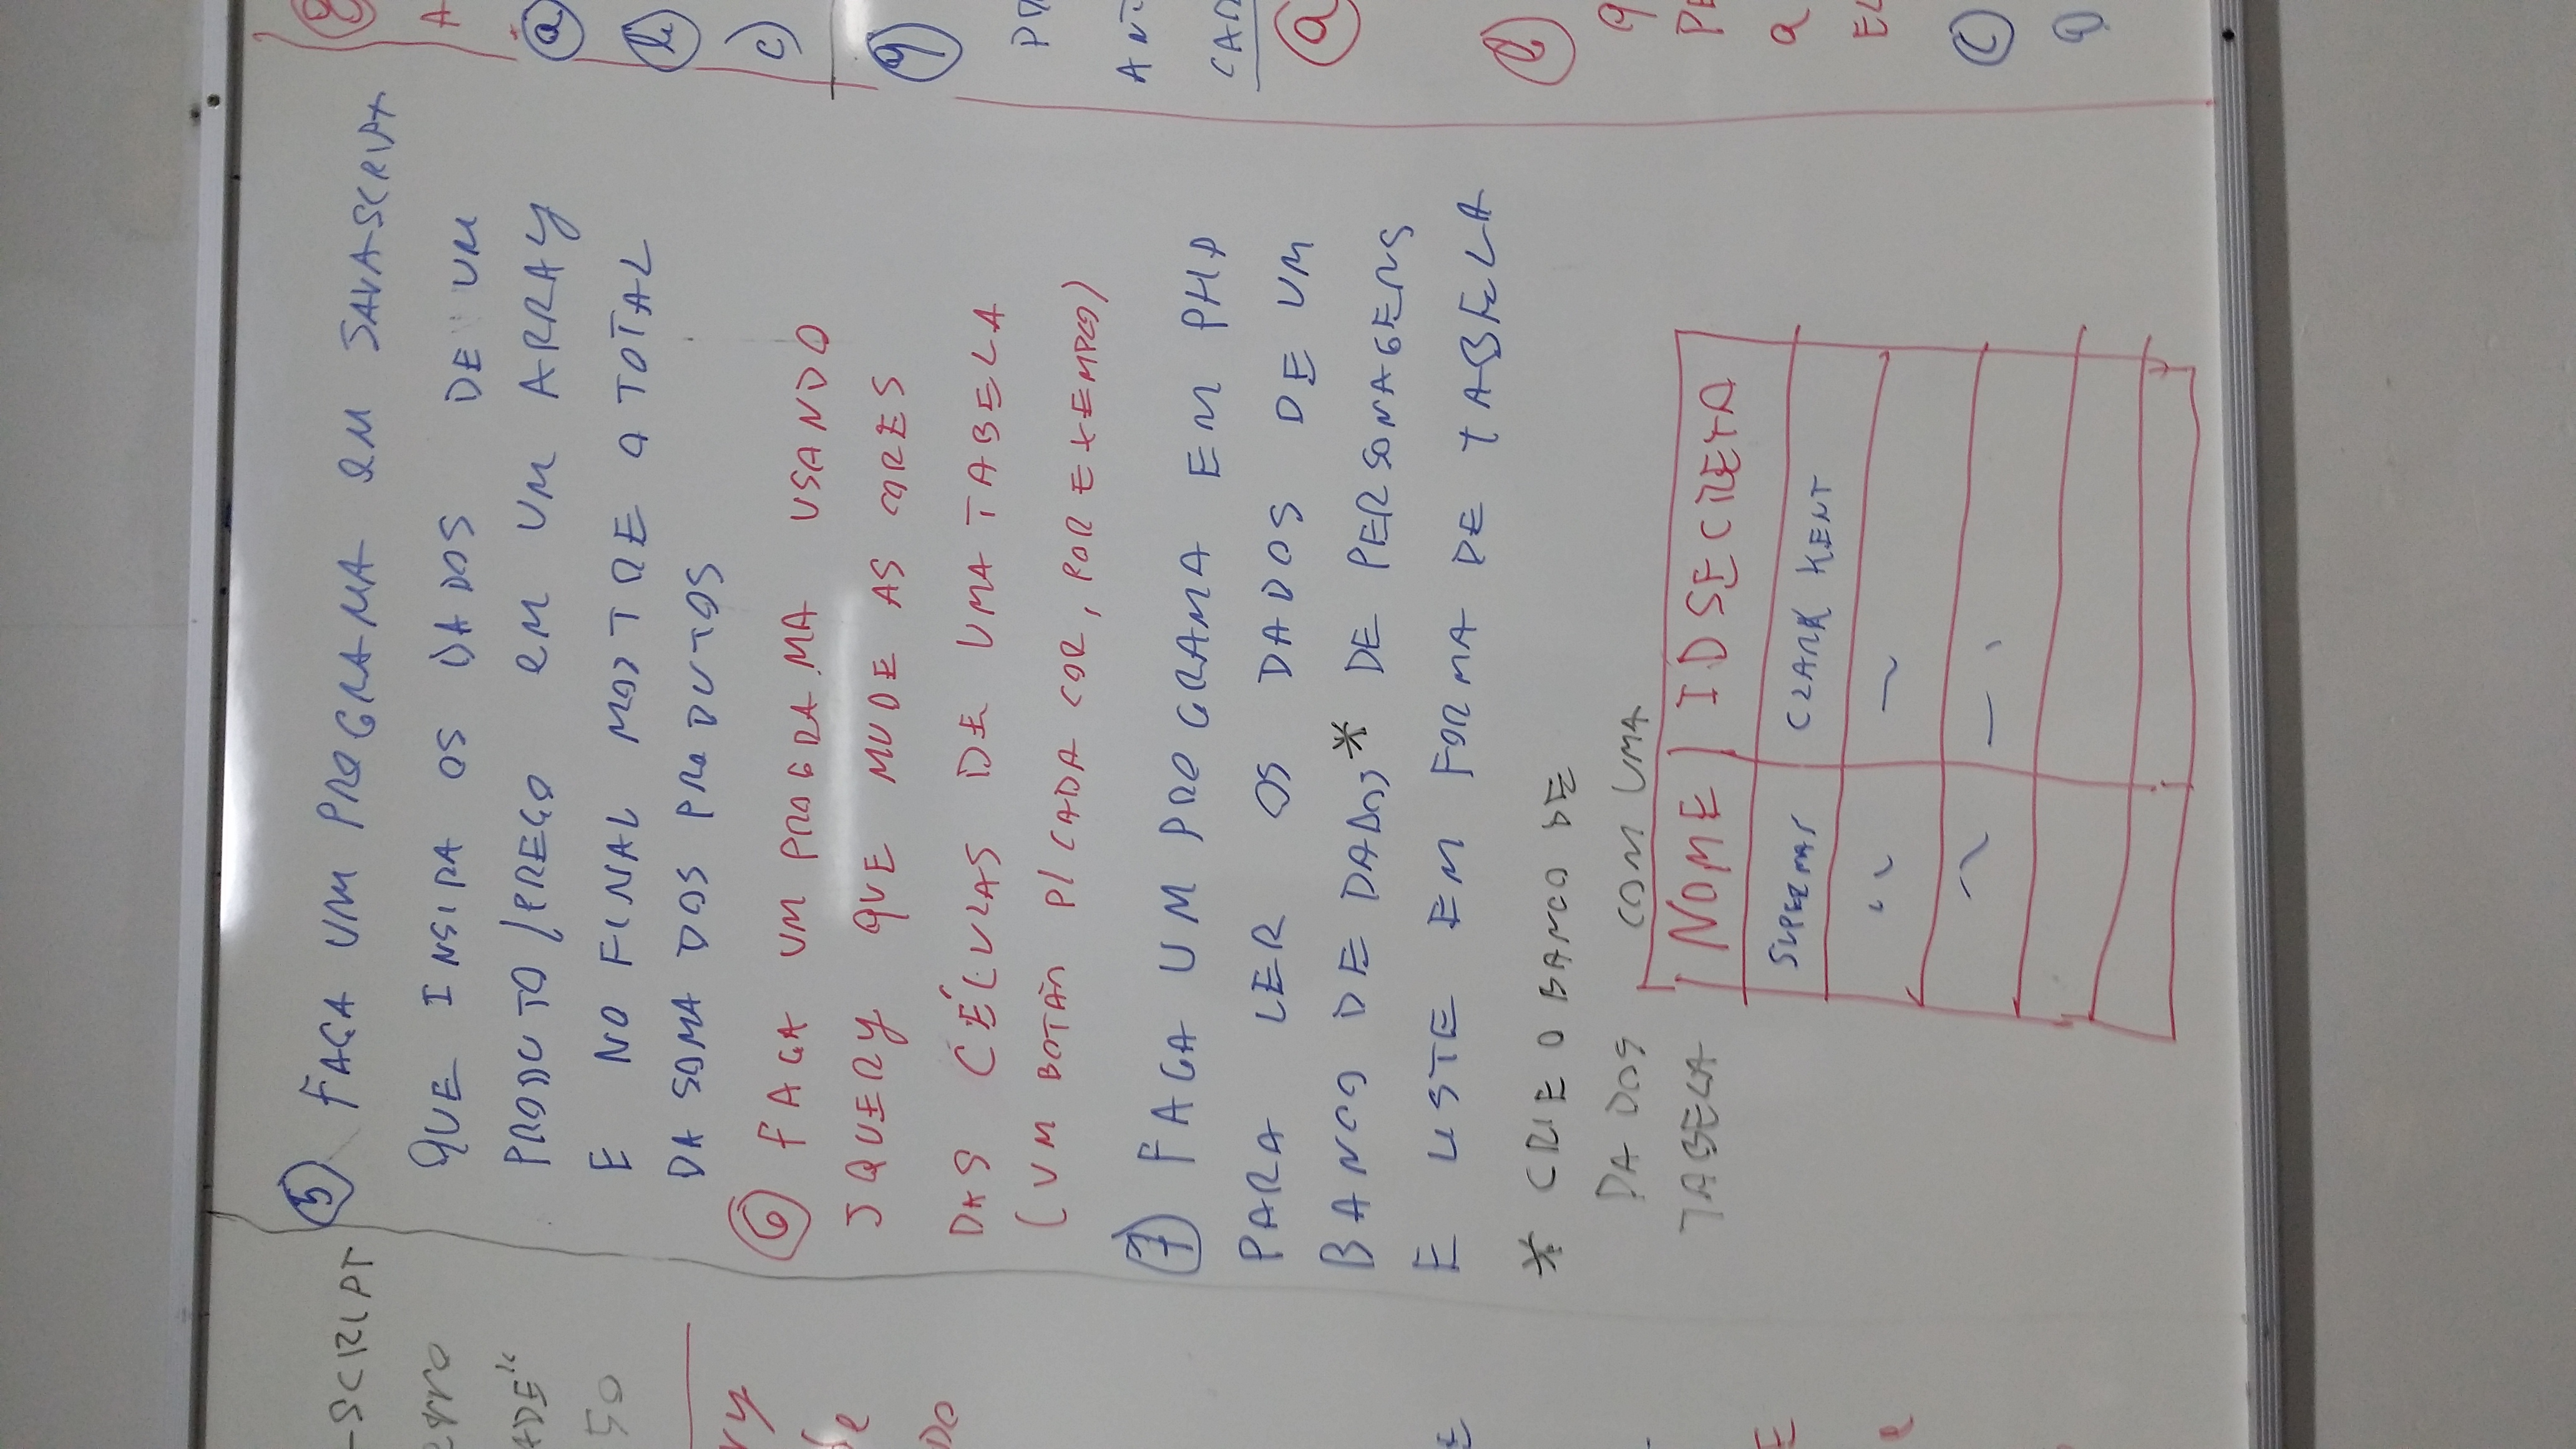 -SCRIPT
erro
ADE"
50
ry
de
DO
E
E
e
5 FAÇA UM PROGRAMA EM JAVASCRIPT
QUE INSIRA OS DADOS DE UM
PRODUTO/PREÇO EM UM ARRAY
E NO FINAL MOSTRE O TOTAL
DA SOMA DOS PRODUTOS
6 FAÇA UM PROGRAMA USANDO
JQUERY QUE MUDE AS CORES
DAS CÉLULAS DE UMA TABELA
(UM BOTÃO P/ CADA COR, POR EXEMPLO)
7 FAÇA UM PROGRAMA EM PHP
PARA LER OS DADOS DE UM
BANCO DE DADOS* DE PERSONAGENS
E LISTE EM FORMA DE TABELA
* CRIE O BANCO DE
DADOS COM UMA
TABELA
NOME IDSECRETA
SUPERMAN CLARK KENT
8
A
a
b
c)
9
PR
ANI
CAR
a
b
q
PE
a
EL
c
D